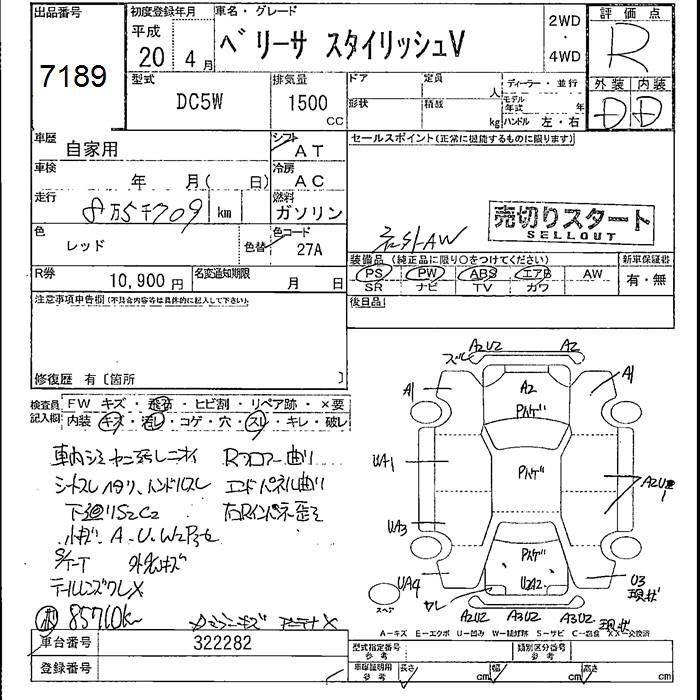 出品番号
7189
初度登録年月
平成
20 4月
車名・グレード
ベリーサ スタイリッシュV
2WD
・
4WD
評価点
R
型式
DC5W
排気量
1500
CC
ドア
定員
人
形状
積載
kg
ディーラー・並行
モデル年式
年
ハンドル 左・右
外装 内装
D D
車歴
自家用
シフト
AT
セールスポイント(正常に機能するものに限ります)
車検
年 月( 日)
冷房
AC
走行
8万5千709 km
燃料
ガソリン
売切りスタート
SELLOUT
色
レッド
色替
色コード
27A
社外AW
装備品 (純正品に限り○をつけてください)
新車保証書
PS PW ABS エアB AW
SR ナビ TV カワ
有・無
R券
10,900 円
名変通知期限
月 日
後日品
注意事項申告欄(不具合内容等は具体的に記入して下さい)
修復歴 有〔箇所 〕
検査員
記入欄
FW キズ・飛石・ヒビ割・リペア跡・×要
内装 キズ・汚レ・コゲ・穴・スレ・キレ・破レ
車内シミ ヤニ汚レニオイ
Rフロアー曲り
シートスレ ヘタリ、ハンドルスレ
エンドパネル曲り
下廻りS2C2
小キズ A・U・W2P多セ
テールレンズワレX
85710km
アンテナX
A2U2 A2
A1 A2 A1
Pハゲ
UA1 Pハゲ A2U2
UA3
Pハゲ
UA4 U2A2 U3
スペア
ワレ
A2U2 A3U2 A3U2
A-キズ E-エクボ U-凹み W-補修跡 S-サビ C-腐食 XX-交換済
車台番号
322282
登録番号
型式指定番号
参考
類別区分番号
参考
車庫証明用
参考
長さ cm 幅 cm 高さ cm